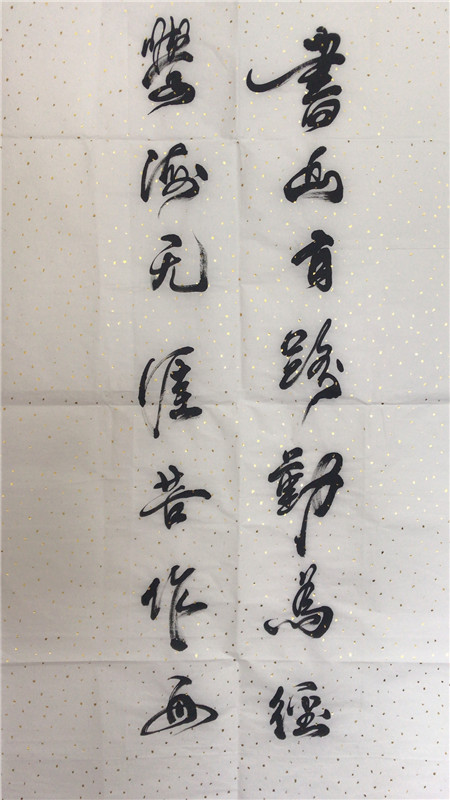 書山有路勤為徑
學海无涯苦作舟